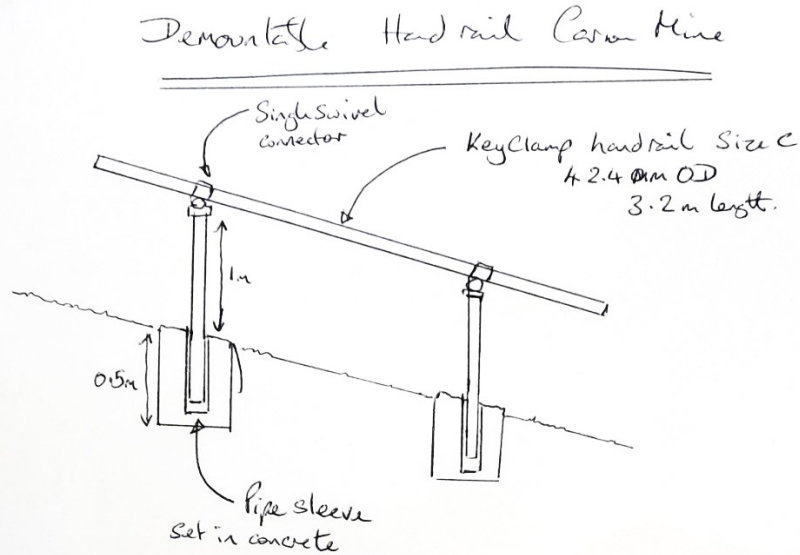 Demountable Handrail Caron Mine
Single Swivel
connector
KeyClamp handrail Size C
42.4 mm OD
3.2m length.
1m
0.5m
Pipe sleeve
set in concrete